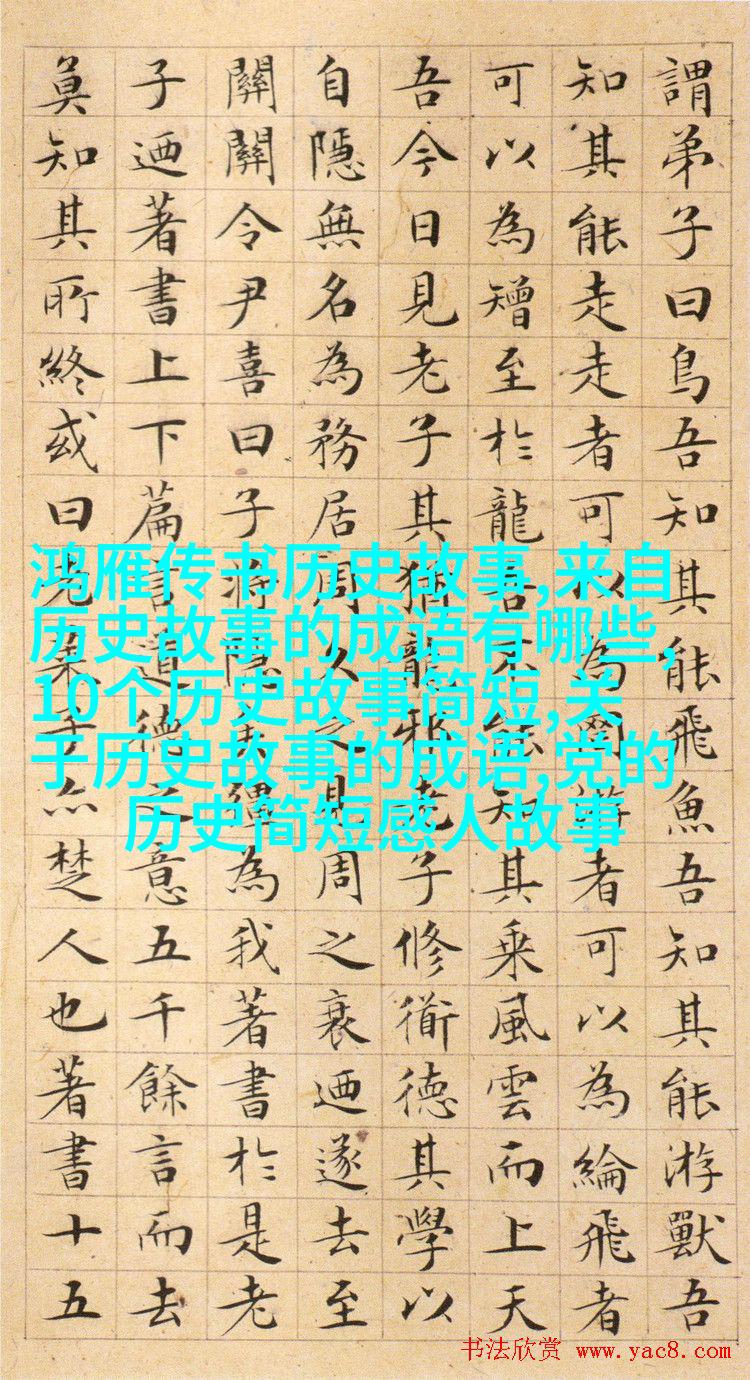 謂弟子曰鳥吾知其能飛魚吾知其能游獸吾
知其能走走者可以為罔游者可以為綸飛者
可以為矰至於龍吾不能知其乗風雲而上天
吾今日見老子其猶龍邪老子修衜德其學以
自隱無名為務居周久之見周之衰迺遂去至
關關令尹喜曰子將隱矣彊為我著書於是老
子迺著書上下篇言道德之意五千餘言而去
莫知其所終或曰老萊子亦楚人也著書十五
鸿雁传书历史故事,来自
历史故事的成语有哪些,
10个历史故事简短,关
于历史故事的成语,党的
历史简短感人故事
书法欣赏 www.yac8.com